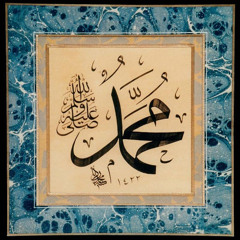 محمد
صلى الله عليه وسلم
١٤٢٢